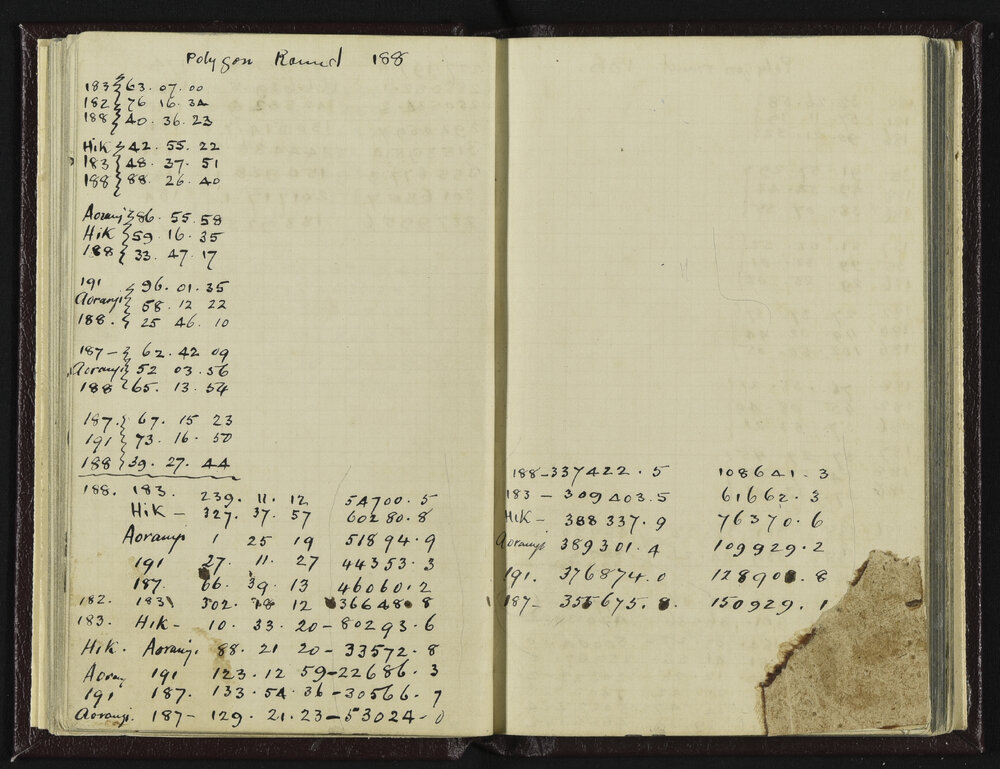 Polygon Round 188
183 } 63. 07. 00
182 } 76 16. 34
188 } 40. 36. 23
Hik } 42. 55. 22
183 } 48. 37. 51
188 } 88. 26. 40
Aorangi } 86. 55. 58
Hik } 59. 16. 35
188 } 33. 47. 17
191 } 96. 01. 35
Aorangi } 58. 12 22
188. } 25 46. 10
187 - } 62. 42 09
Aorangi } 52 03. 56
188 } 65. 13. 54
187. } 67. 15 23
191 } 73. 16. 50
188 } 39. 27. 44
188. 183. 239. 11. 12 54700. 5
Hik - 327. 37. 57 60280. 8
Aorangi 1 25 19 51894. 9
191 27. 11. 27 44353. 3
187. 66. 39. 13 46060. 2
182. 183 302. 12 36648. 8
183. Hik - 10. 33. 20 - 80293. 6
Hik. Aorangi. 88. 21 20 - 33572. 8
Aorang 191 123. 12 59 - 22686. 3
191 187. 133. 54. 36 - 30566. 7
Aorangi. 187 - 129. 21. 23 - 53024 - 0
188 - 337422. 5 108641. 3
183 - 309403. 5 61662. 3
Hik - 388337. 9 76370. 6
Aorangi 389301. 4 109929. 2
191. 376874. 0 128908. 8
187 - 355675. 8. 150929. 1